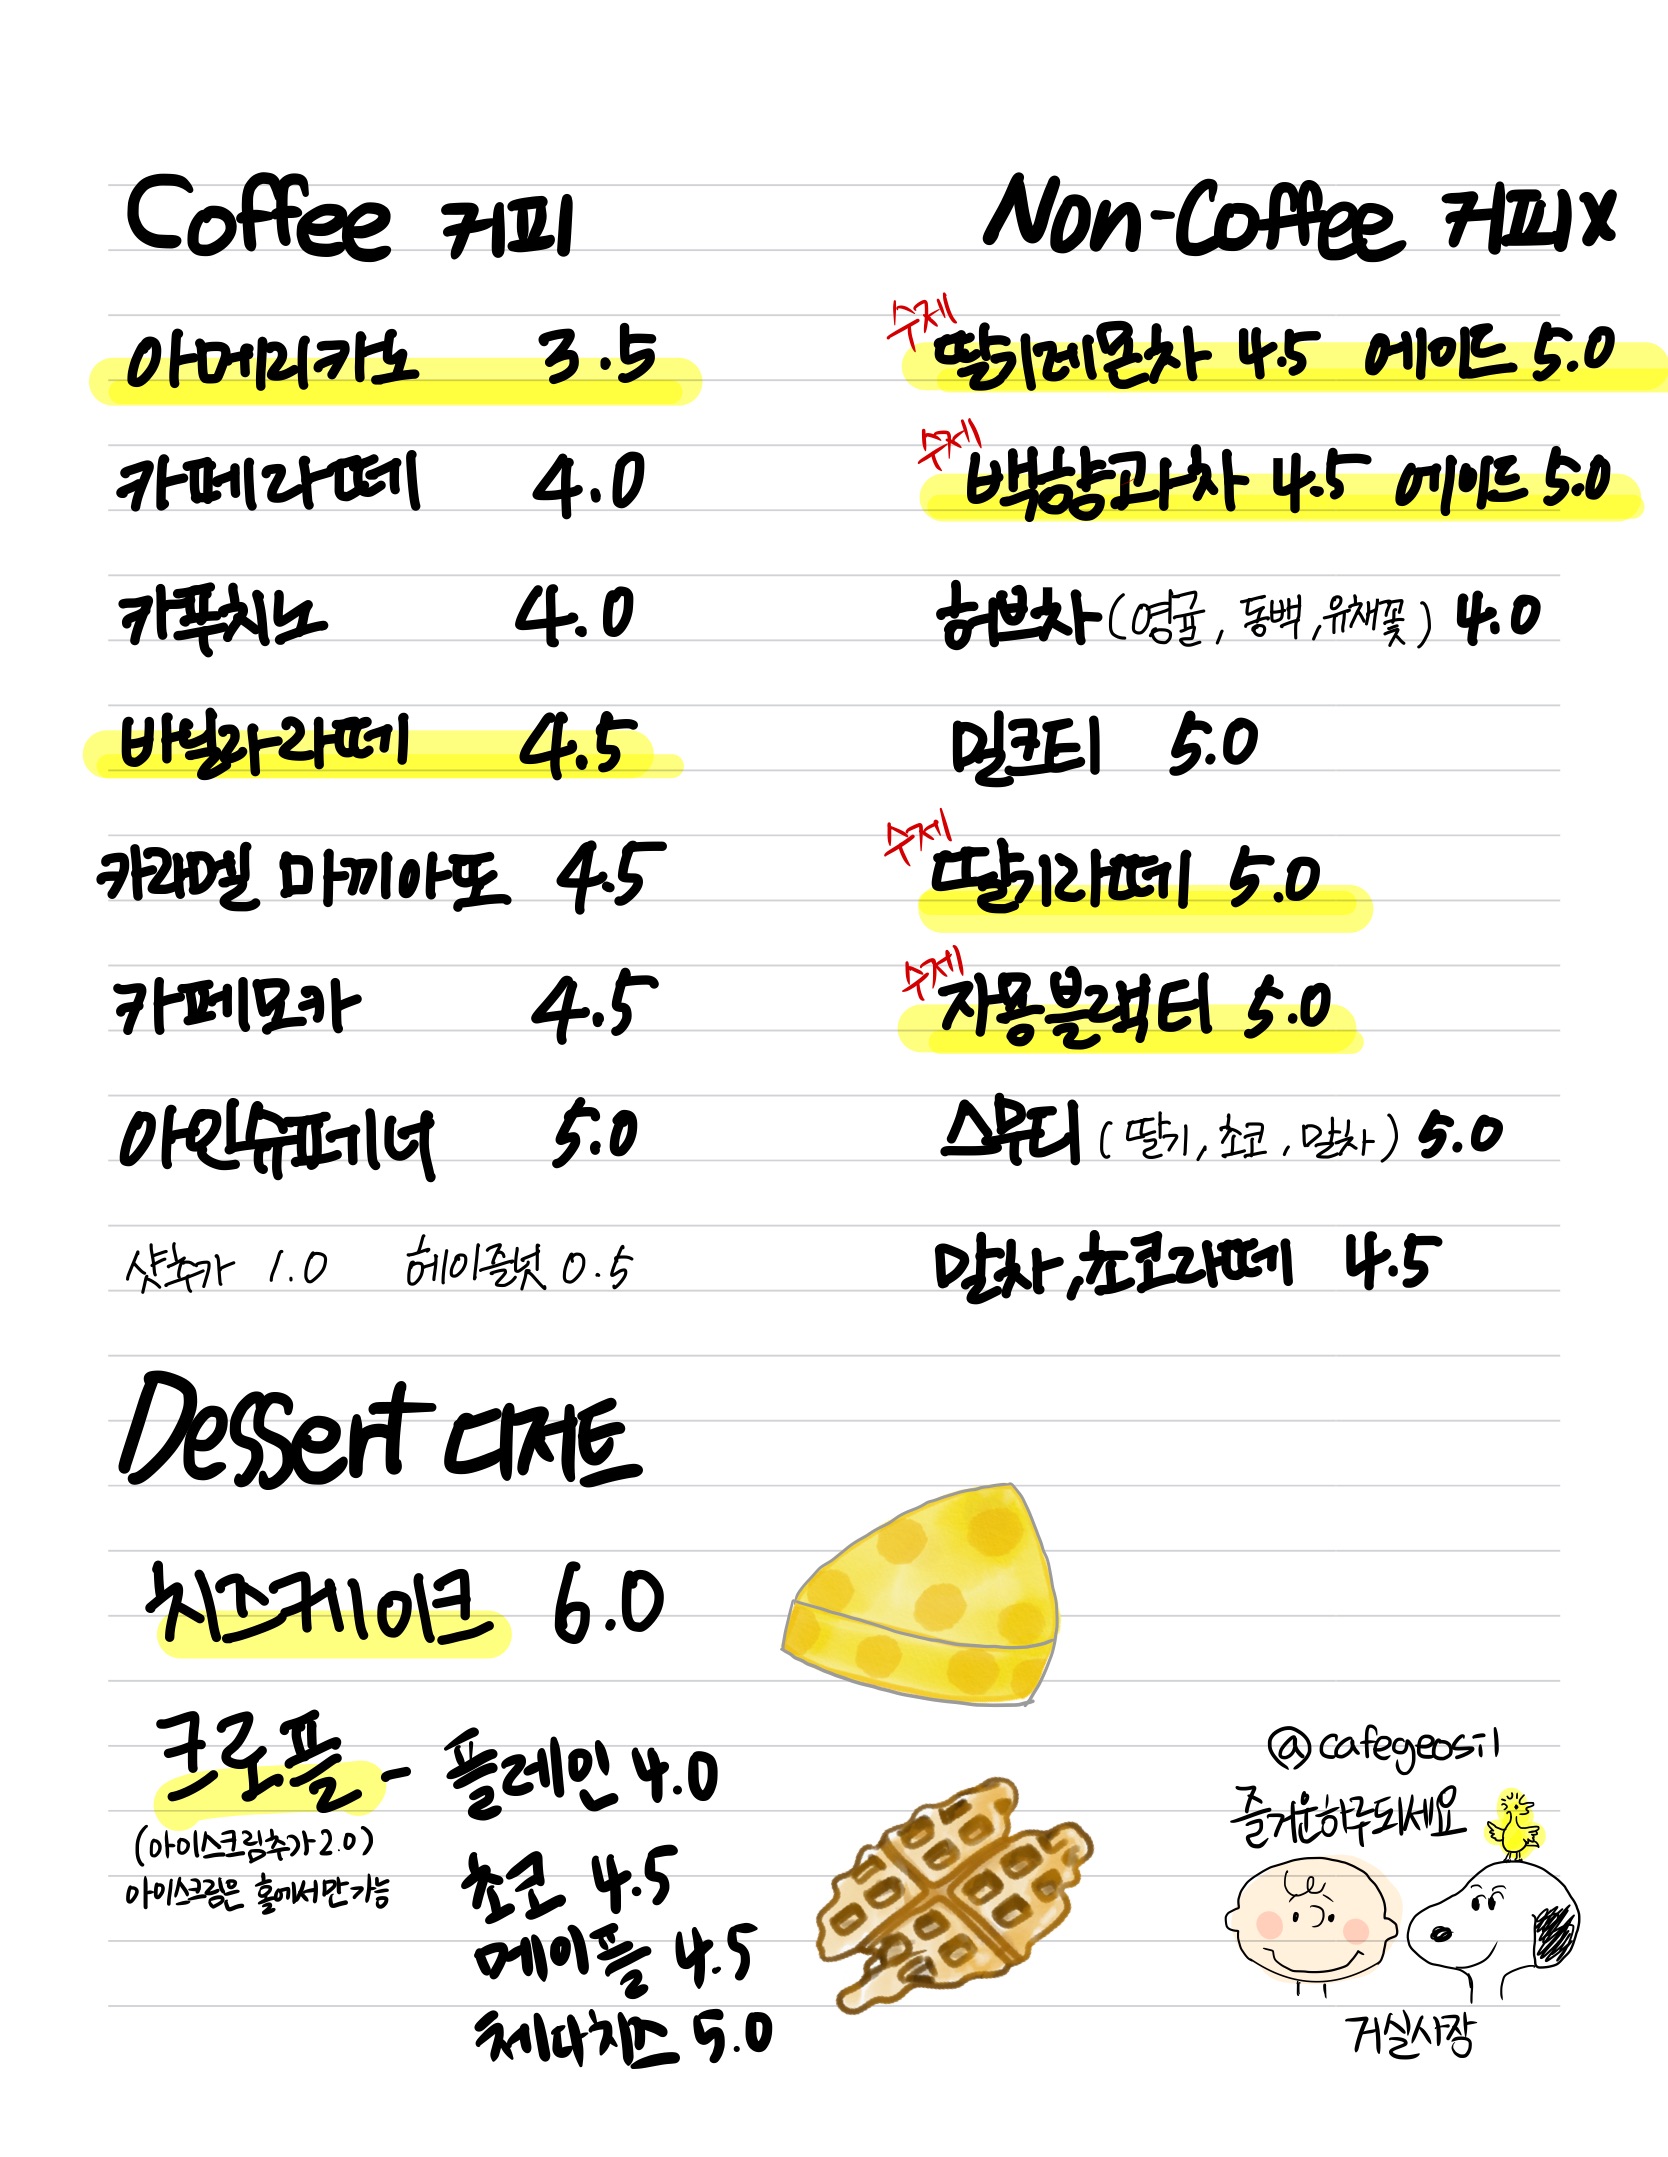 Coffee 커피
아메리카노 3.5
카페라떼 4.0
카푸치노 4.0
바닐라라떼 4.5
카라멜 마끼아또 4.5
카페모카 4.5
아인슈페너 5.0
샷추가 1.0 헤이즐넛 0.5
Non-Coffee 커피X
수제 딸기레몬차 4.5 에이드 5.0
수제 백향과차 4.5 에이드 5.0
허브차 (영귤, 동백, 유채꽃) 4.0
밀크티 5.0
수제 딸기라떼 5.0
수제 자몽블랙티 5.0
스무디 (딸기, 초코, 말차) 5.0
말차, 초코라떼 4.5
Dessert 디저트
치즈케이크 6.0
크로플 - 플레인 4.0
(아이스크림추가 2.0)
아이스크림은 홀에서만 가능
초코 4.5
메이플 4.5
체다치즈 5.0
@cafegeosil
즐거운하루되세요
거실사장